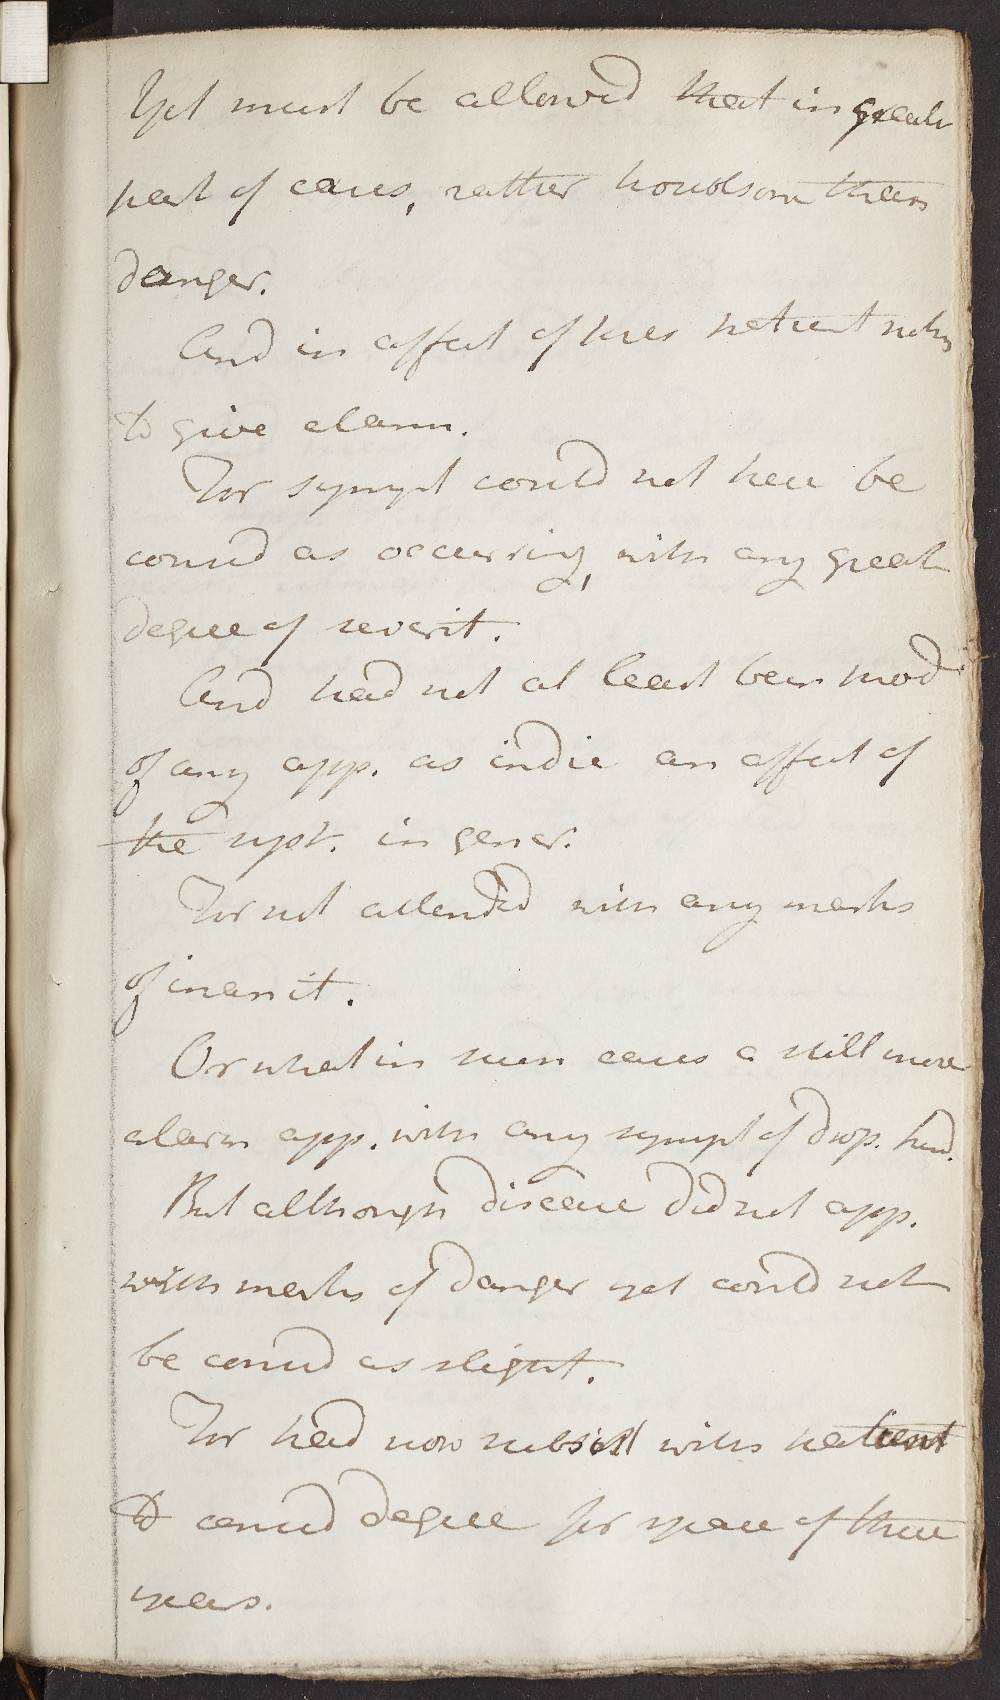 Yet must be allowed that in great
part of cases, rather troublsom than
danger.
And in affect of this patient noth
to give alarm.
For sympt could not here be
consid as occurring, with any great
degree of severit.
And had not at least been mod
of any app. as indic an affect of
the syst. in gener.
For not attended with any marks
of inanit.
Or what in such cases a still more
alarm app. with any sympt of drop. kind.
But although disease did not app.
with marks of danger yet could not
be consid as slight.
For had now subsist with patient
to consid degree for space of three
years.